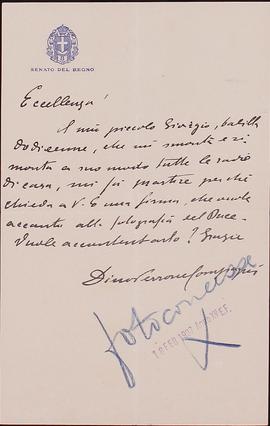 SENATO DEL REGNO
Eccellenza!
Il mio piccolo Giorgio, balilla
dodicenne, che mi smonta e ri
monta a suo modo tutte le radio
di casa, mi fa
chieda a V. E una firma, che vuole
accanto alla fotografia del Duce.
Vuole accontentarlo? Grazie
Dino Perrone Compagni
fotoconcessa
18 FEB 1937 Anno XV E.F.